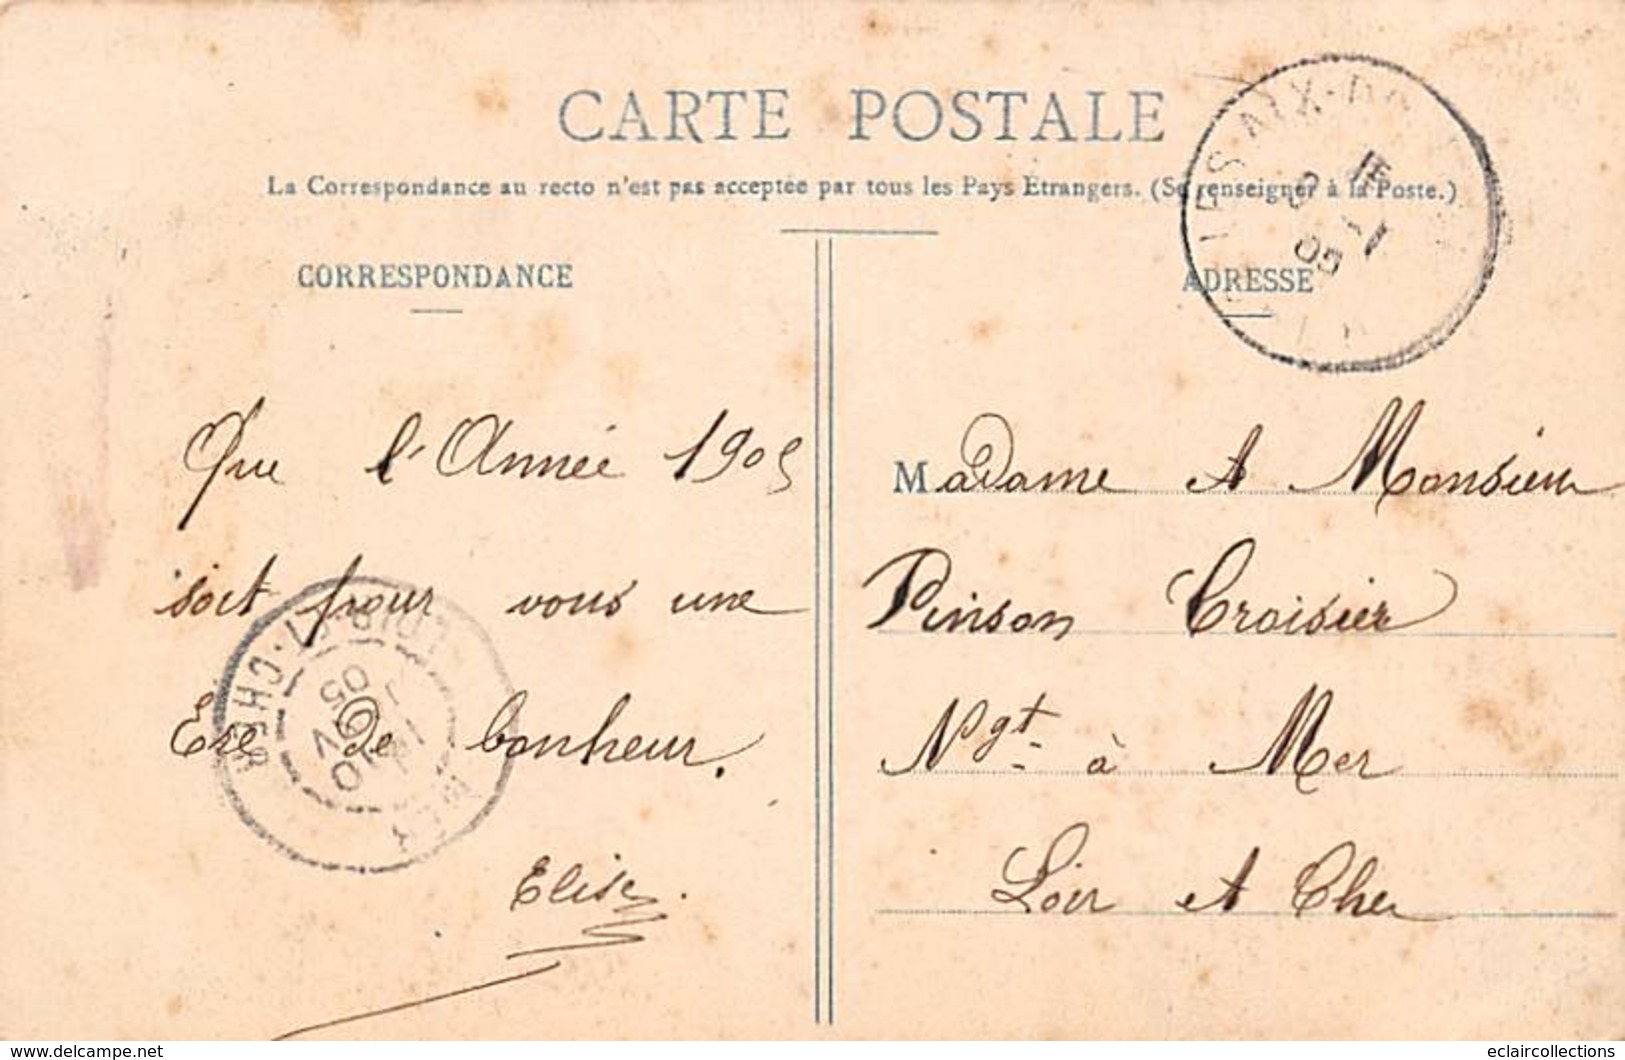 CARTE POSTALE
La Correspondance au recto n'est pas acceptée par tous les Pays Etrangers. (Se renseigner à la Poste.)
CORRESPONDANCE
Que l'Année 1905
soit pour vous une
Ere de bonheur.
Elise.
ADRESSE
Madame et Monsieur
Pinson Croisier
Ngt à Mer
Loir et Cher
05
LOIR-ET-CHER
MER
05
www.delcampe.net
eclaircollections